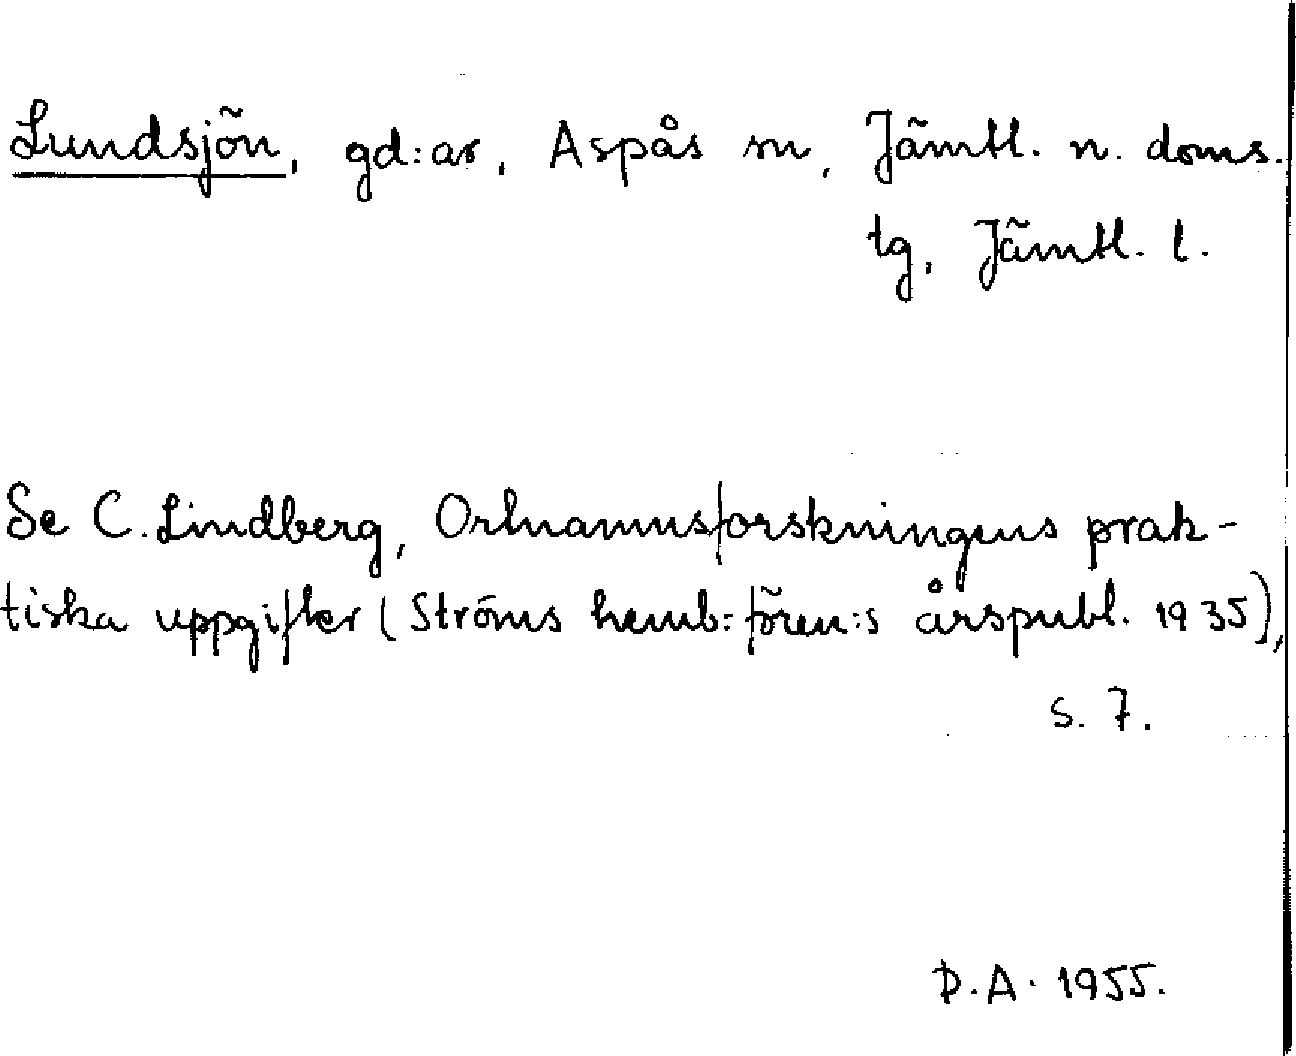 Lundsjön, gd:ar, Aspås sn, Jämtl. n. doms.
tg, Jämtl. l.
Se C. Lindberg, Ortnamnsforskningens prak-
tiska uppgifter (Ströms hemb:fören:s årspubl. 1935),
s. 7.
D.A. 1955.